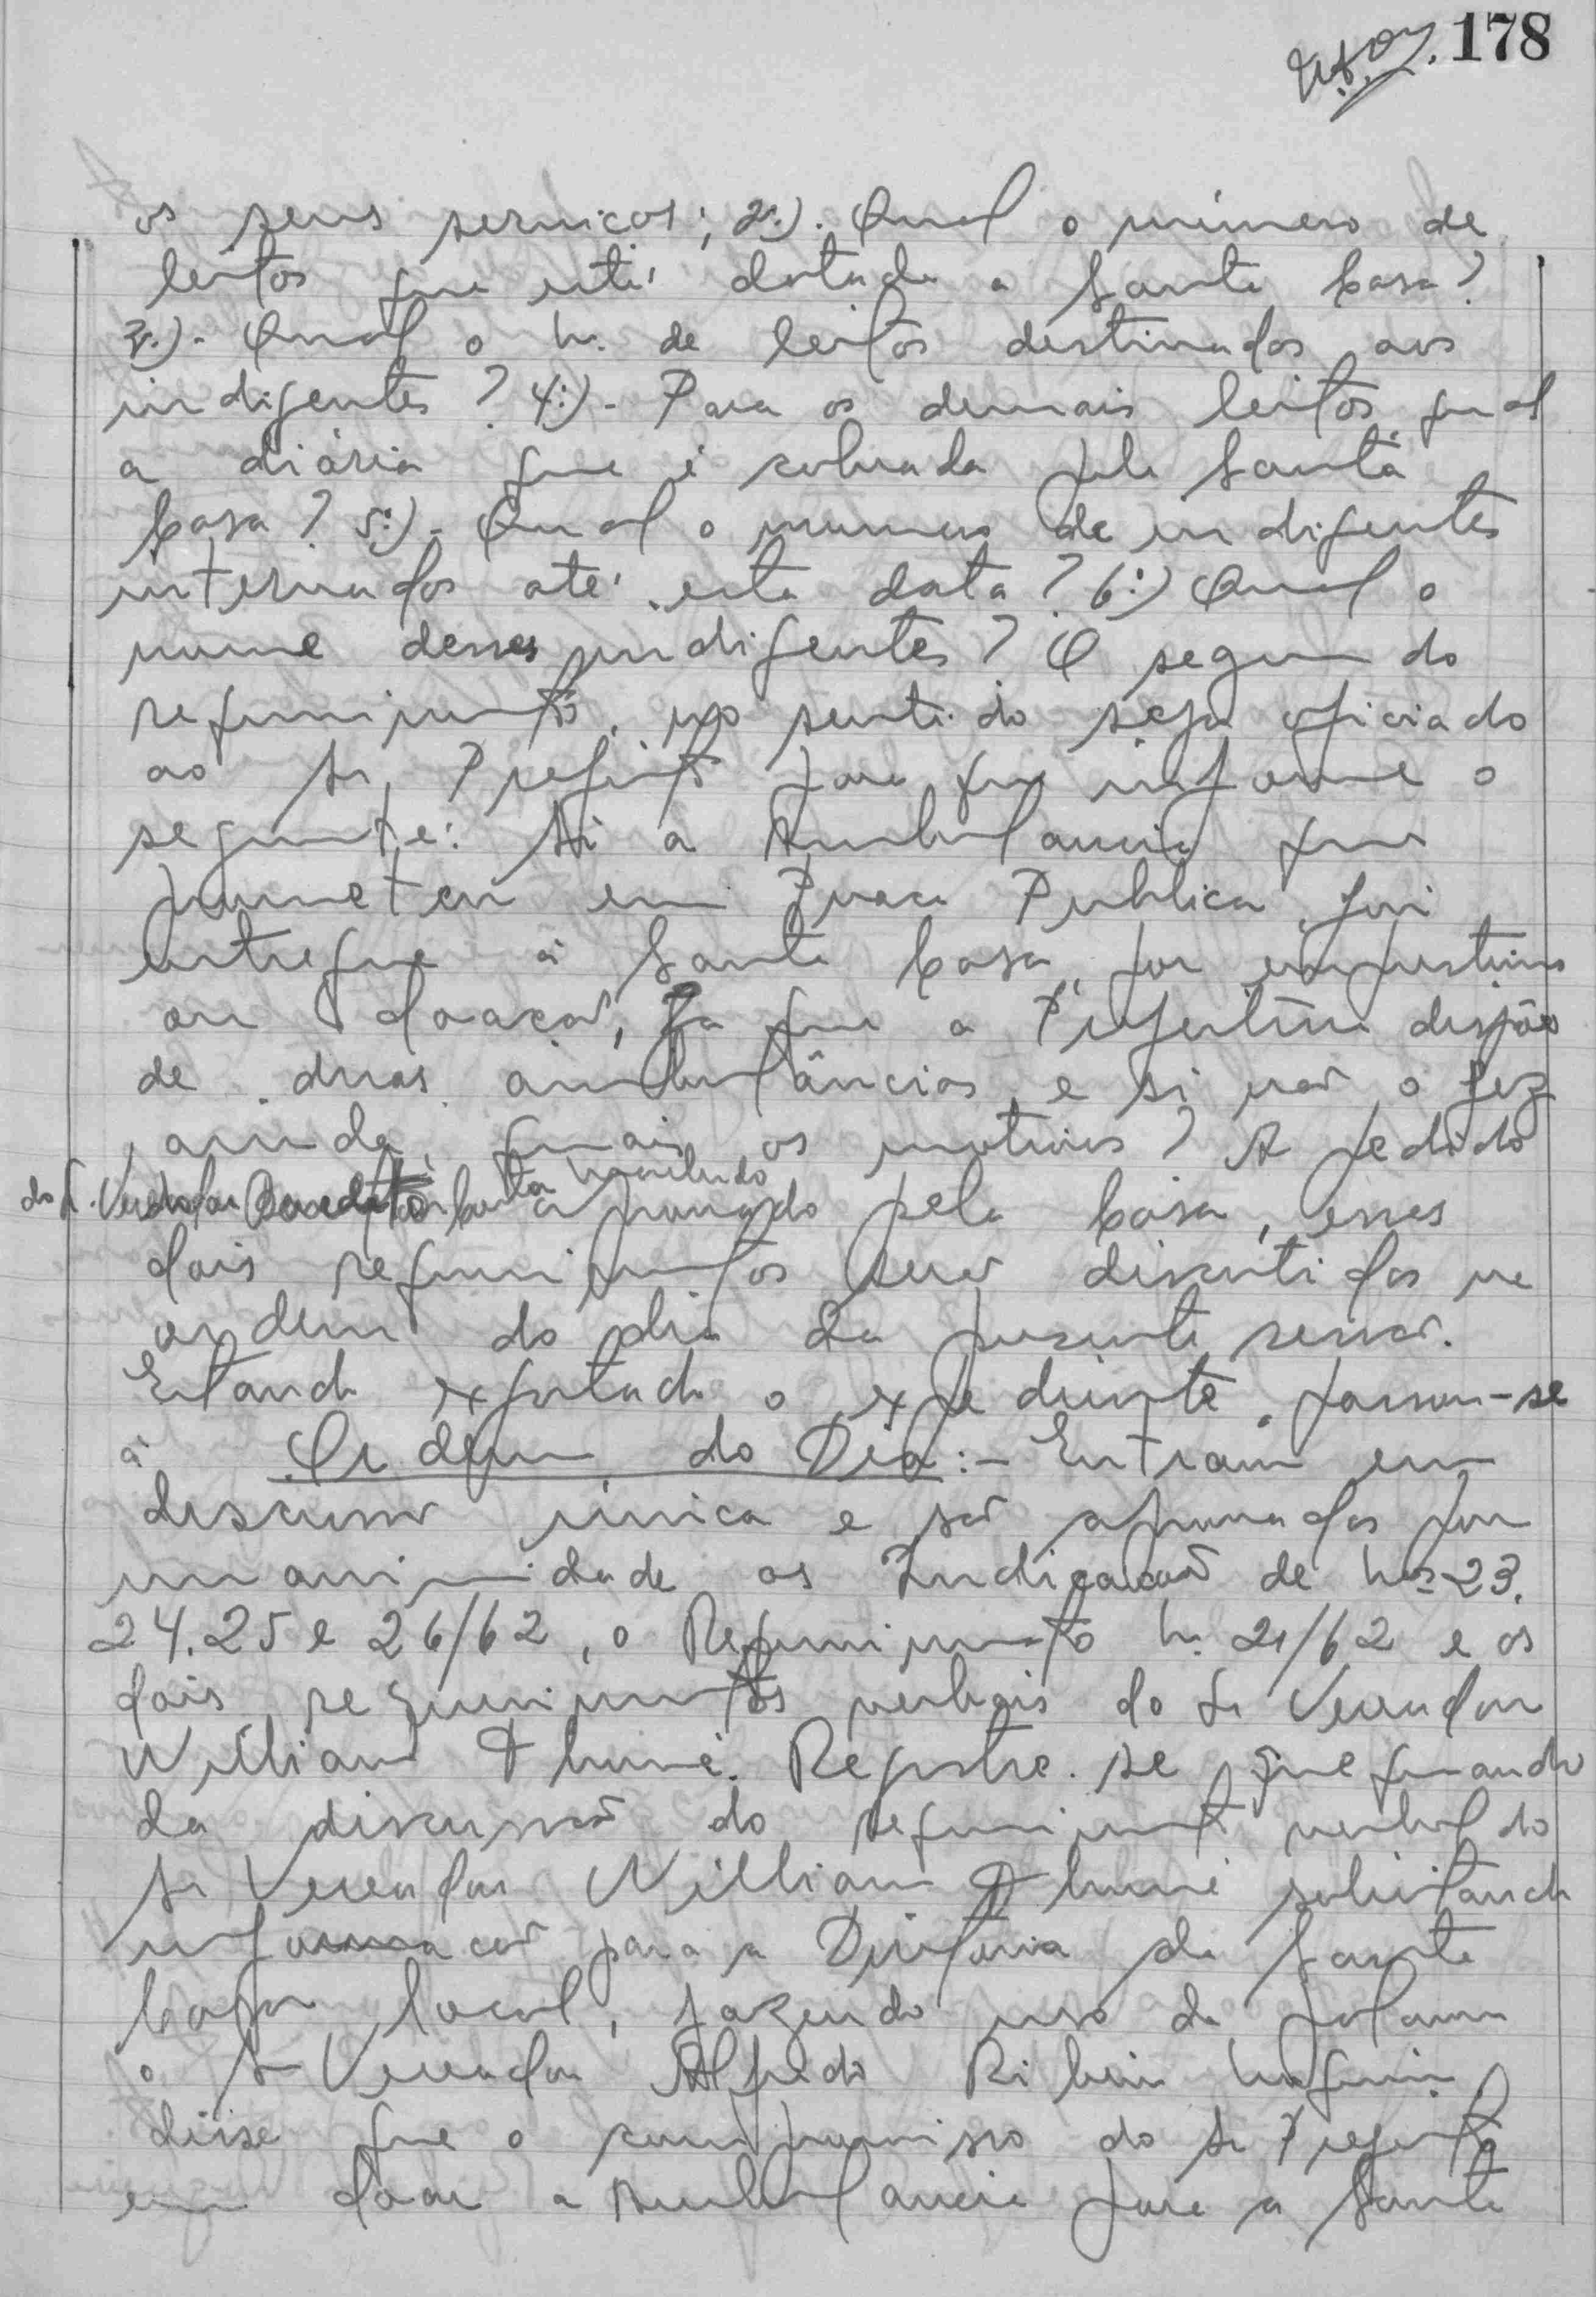 178
os seus serviços; 2º.). Qual o número de
leitos que está dotada a Santa Casa?
3º.). Qual o n. de leitos destinados aos
indigentes? 4º)- Para os demais leitos, qual
a diária que é cobrada pela Santa
Casa? 5º)- Qual o numero de indigentes
internados até esta data? 6º) Qual o
nome desses indigentes? O segundo
requerimento, no sentido seja oficiado
ao Sr. Prefeito para que informe o
seguinte: Si a Ambulancia que
prometeu em Praça Publica foi
entregue à Santa Casa, por empréstimo
ou doação, já que a Prefeitura dispõe
de duas ambulâncias e si não o fez
ainda, quais os motivos? A pedido
do Sr. Vereador Benedito Costa Machado
aprovado pela Casa, esses
dois requerimentos serão discutidos na
ordem do dia da presente sessão.
Estando esgotado o expediente, passou-se
à Ordem do Dia:- Entram em
discussão única e são aprovados por
unanimidade as Indicação de nos 23.
24.25 e 26/62, o Requerimento n. 21/62 e os
dois requerimentos verbais do Sr Vereador
William Thumé. Registre-se que quando
da discussão do requerimento verbal do
Sr Vereador William Thumé solicitando
informação para a Diretoria da Santa
Casa local, fazendo uso da palavra
o Sr Vereador Alfredo Ribeiro
disse que o compromisso do Sr Prefeito
em doar a Ambulancia para a Santa